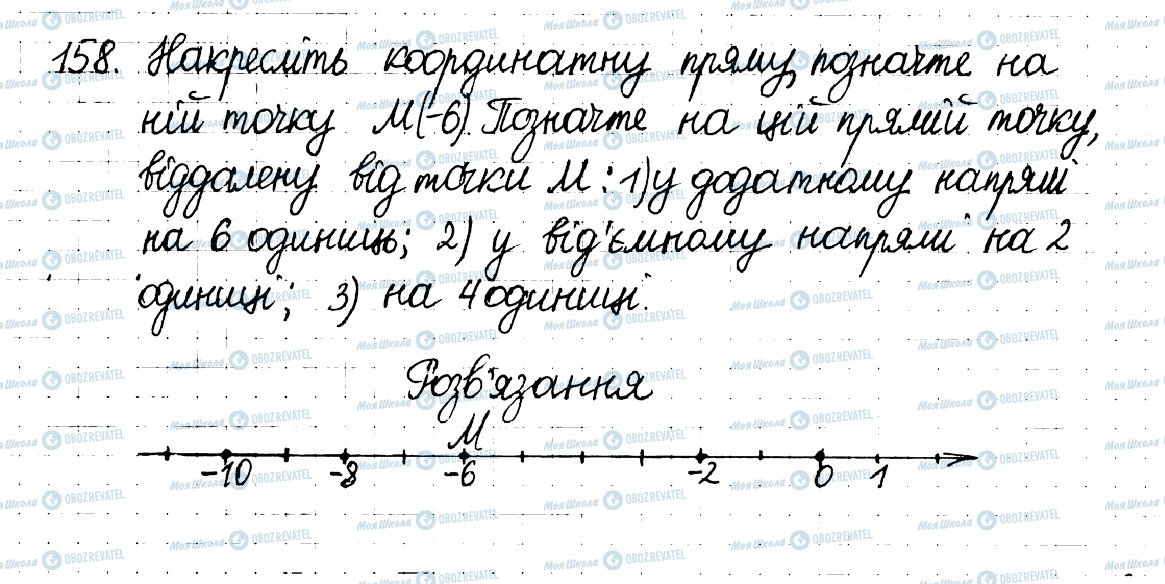 158. Накресліть координатну пряму, позначте на
ній точку М(-6). Позначте на цій прямій точку,
віддалену від точки М: 1) у додатному напрямі
на 6 одиниць; 2) у від'ємному напрямі на 2
одиниці; 3) на 4 одиниці.
Розв'язання
М
-10 -8 -6 -2 0 1
МояШкола OBOZREVATEL